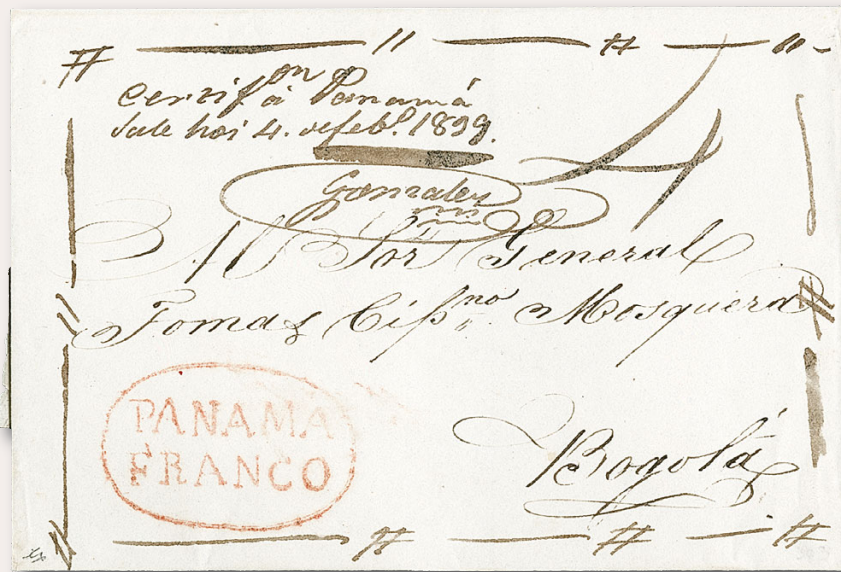 Certif.on á Panamá
Sale hoi 4. de feb.o 1839.
Gonzalez
4
Al Sor General
Tomas Cip.no Mosquera
Bogotá
PANAMA
FRANCO